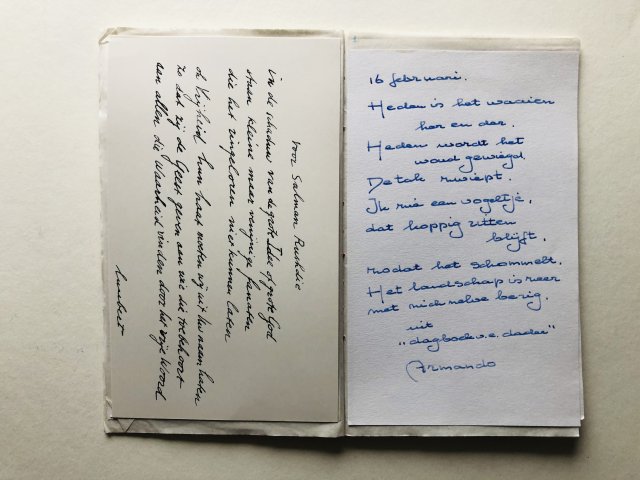 Voor Salman Rushdie
in de schaduw van de grote Idee of grote God
staan kleine maar venijnige fanaten
die het niet kunnen laten
de Vrijheid hun haat moeten wij uit hun naam
zo dat zij de Geest geven aan wie die toebehoort
aan allen die Waarheid vinden door het vrije Woord
Lucebert
16 februari.
Heden is het waaien
her en der.
Heden wordt het
woud gewiegd.
De tak zwiept.
Ik zie een vogeltje,
dat koppig zitten
blijft,
zodat het schommelt.
Het landschap is weer
met zich zelve bezig.
uit
„dagboek v. e. dader”
Armando